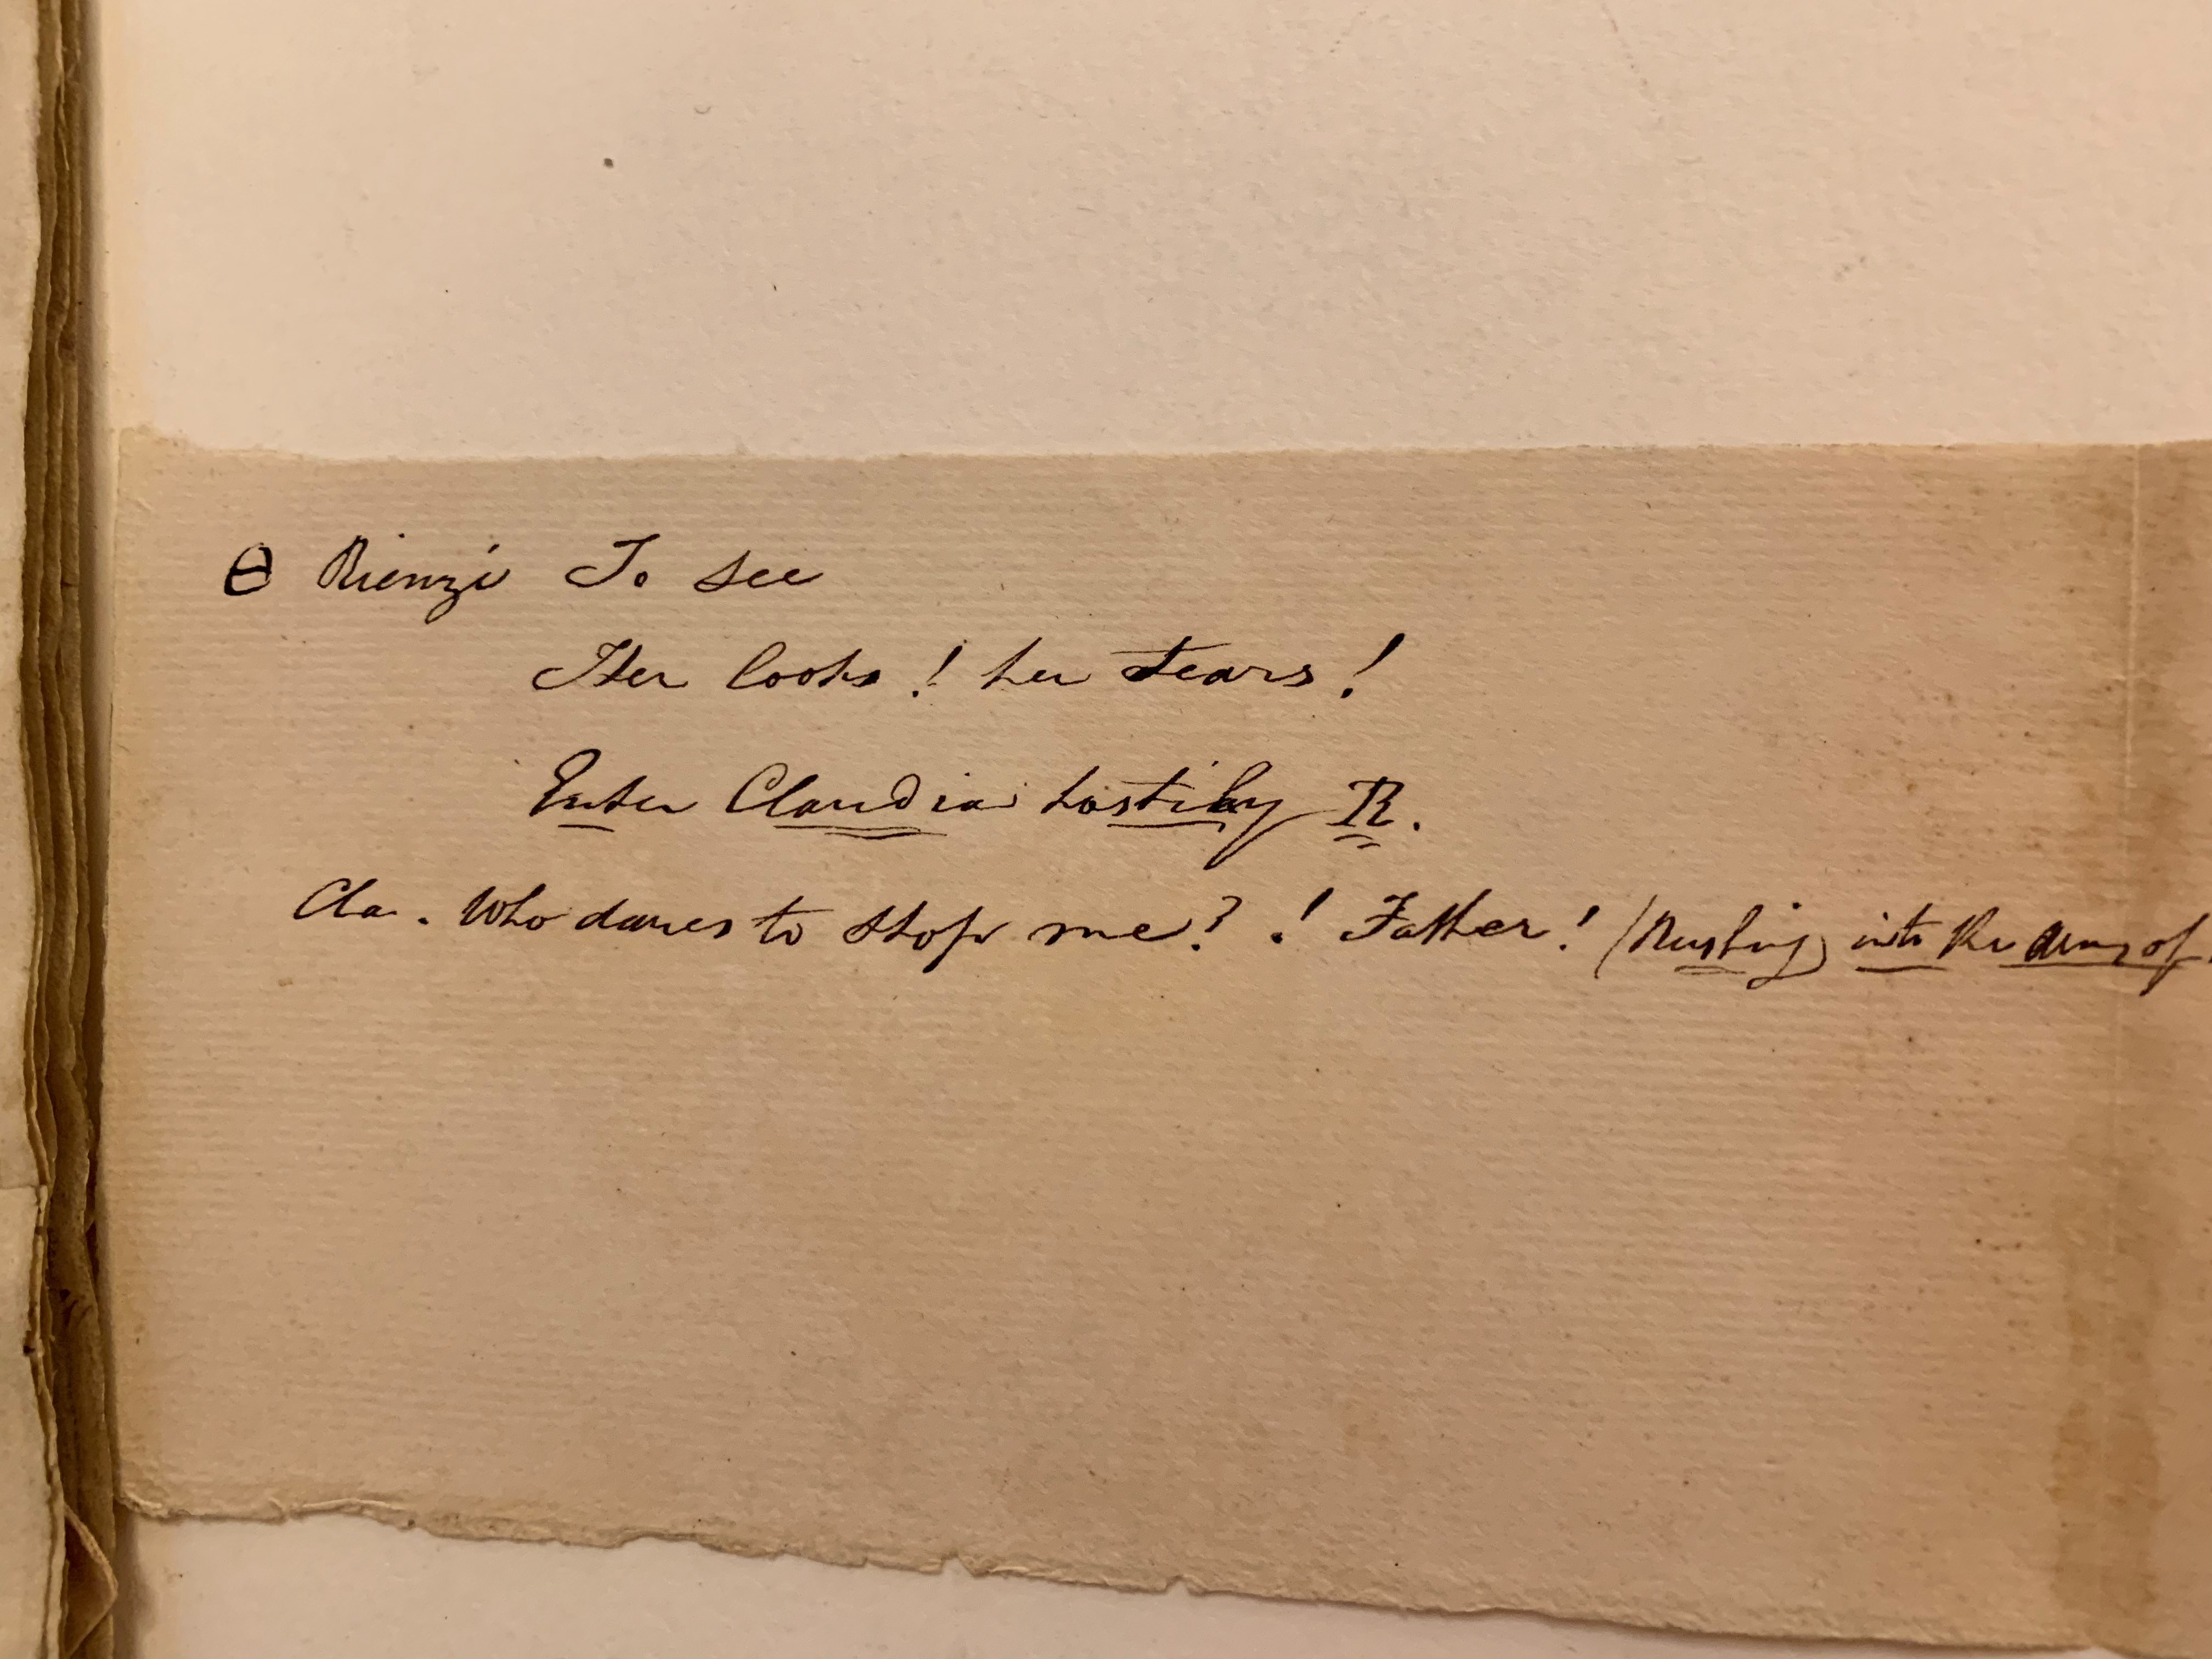 Ꮎ Rienzi To see
Her looks! her tears!
Enter Claudia hastily R.
Cla. Who dares to stop me? ! Father! (Rushing into the arms of